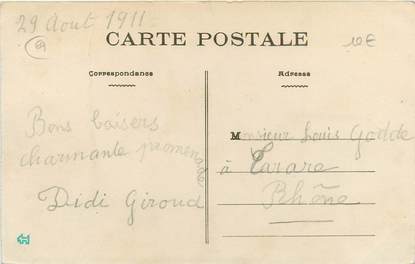 29 Aout 1911
69
CARTE POSTALE
10€
Correspondance
Adresse
Bons baisers
charmante promenade
Didi Giroud
Monsieur Louis Godde
à Tarare
Rhône